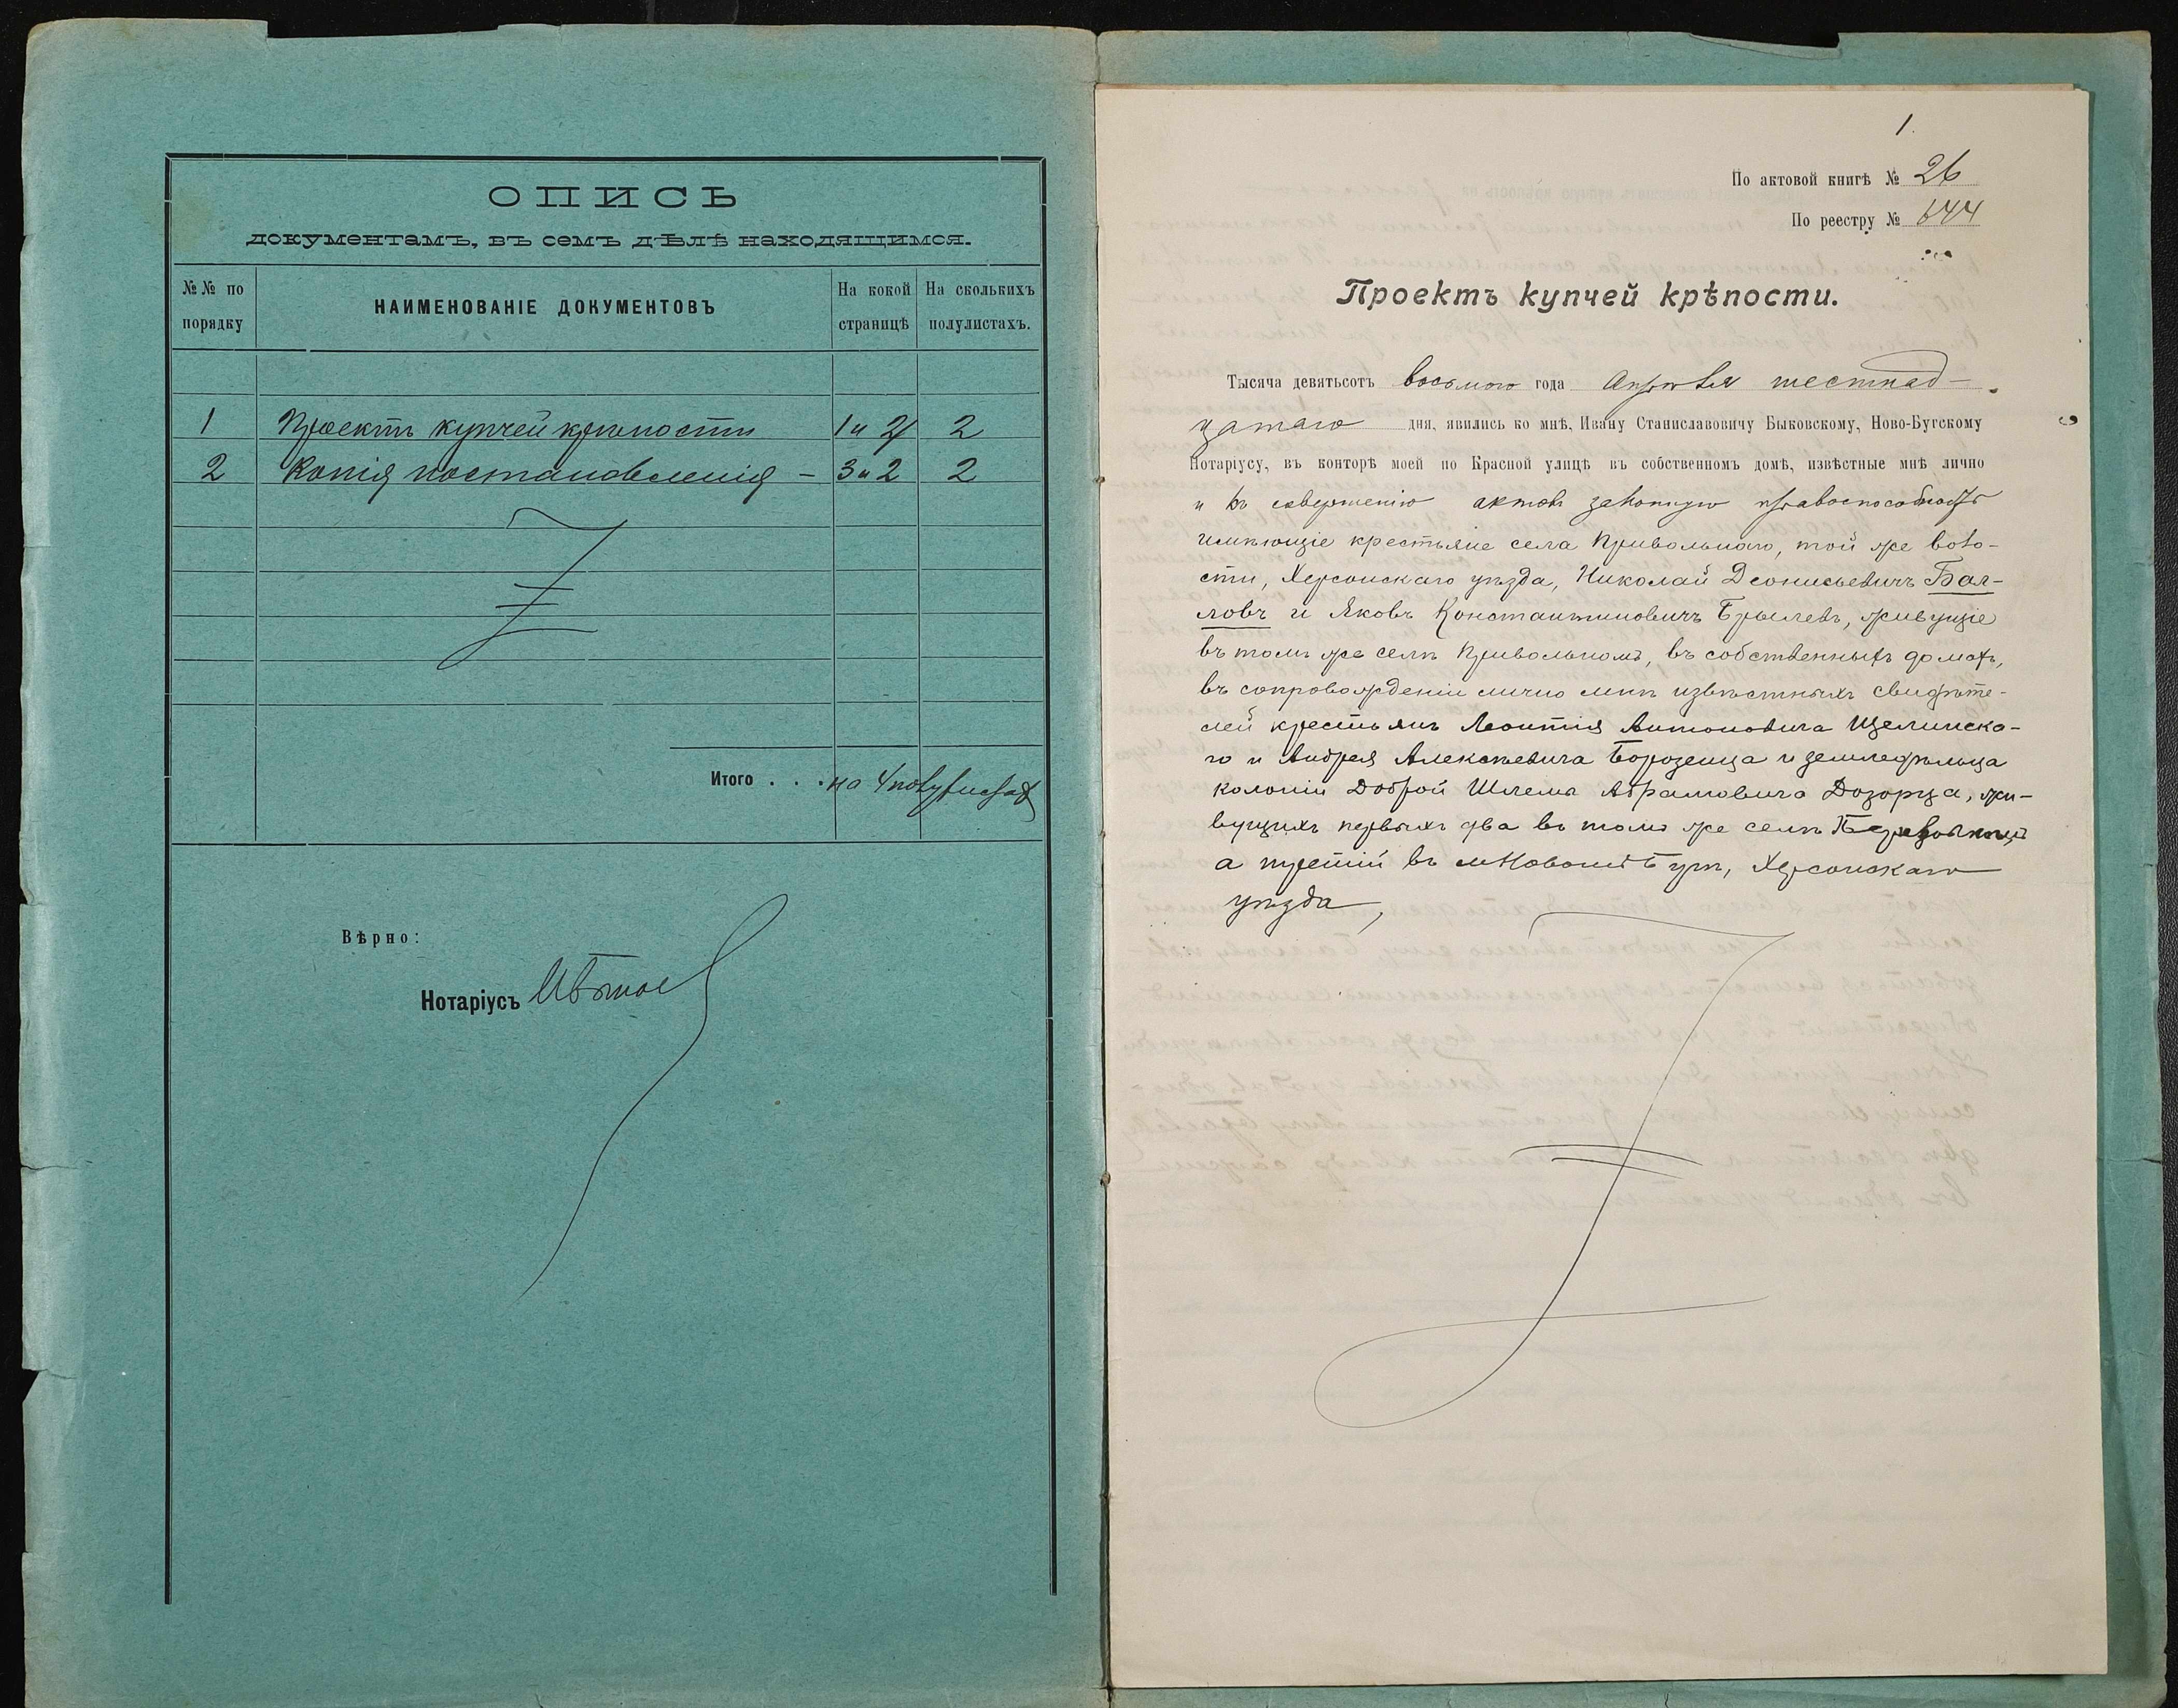 ОПИСЬ
документамъ, въ семъ дѣлѣ находящимся.
№№ по порядку
НАИМЕНОВАНІЕ ДОКУМЕНТОВЪ
На кокой страницѣ
На сколькихъ полулистахъ.
1 Проектъ купчей крѣпости 1 и 2 2
2 Копія постановленія — 3 и 2 2
Итого . . . на 4 полулистах
Вѣрно:
Нотаріусъ
1.
По актовой книгѣ № 26
По реестру № 644
Проектъ купчей крѣпости.
Тысяча девятьсотъ восьмого года Апрѣля шестнад-
цатаго дня, явились ко мнѣ, Ивану Станиславовичу Быковскому, Ново-Бугскому
Нотаріусу, въ конторѣ моей по Красной улицѣ въ собственномъ домѣ, извѣстные мнѣ лично
и къ совершенію актовъ законную правоспособность
имѣющіе крестьяне села Привольнаго, той же воло-
сти, Херсонскаго уѣзда, Николай Деонисьевичъ Бал-
ловъ и Яковъ Константиновичъ Брылевъ, живущіе
въ томъ же селѣ Привольномъ, въ собственныхъ домахъ,
въ сопровожденіи лично мнѣ извѣстныхъ свидѣте-
лей крестьянъ Леонтія Антоновича Щелинска-
го и Андрея Алексѣевича Борозенца и земледѣльца
колоніи Доброй Шлемы Абрамовича Дозорца, жи-
вущихъ первыхъ два въ томъ же селѣ
а третій въ м. Новомъ Бугѣ, Херсонскаго
уѣзда,